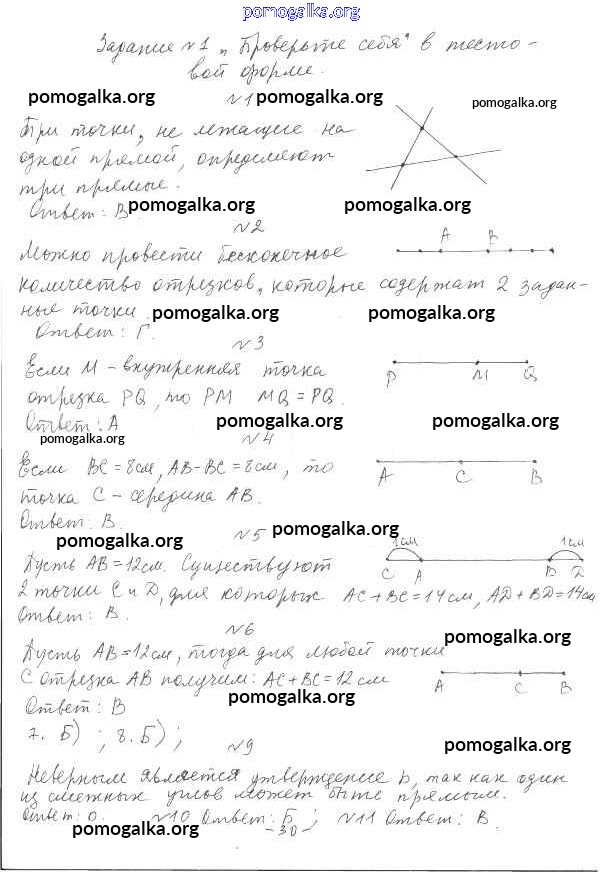 pomogalka.org
Задание №1 „Проверьте себя" в тесто-
вой форме.
pomogalka.org №1 pomogalka.org pomogalka.org
Три точки, не лежащие на
одной прямой, определяют
три прямые.
Ответ: В pomogalka.org pomogalka.org
№2
A B
Можно провести бесконечное
количество отрезков, которые содержат 2 задан-
ные точки. pomogalka.org pomogalka.org
Ответ: Г.
№3
Если М - внутренняя точка
P M Q
отрезка PQ, то PM MQ = PQ.
Ответ: А pomogalka.org pomogalka.org
pomogalka.org №4
Если BC = 8см, AB-BC = 8см, то
A C B
точка С - середина АВ.
Ответ: В.
pomogalka.org №5 pomogalka.org
1см 1см
C A B D
Пусть АВ=12см. Существуют
2 точки С и D, для которых AC+BC=14см, AD+BD=14см
Ответ: В.
№6 pomogalka.org
Пусть АВ=12см, тогда для любой точки
С отрезка АВ получим: AC+BC=12 см
A C B
pomogalka.org
Ответ: В
7. Б) ; 8. Б) ;
№9 pomogalka.org
Неверным является утверждение b, так как один
из смежных углов может быть прямым.
Ответ: О. №10 Ответ: Б ; №11 Ответ: В.
pomogalka.org -30-